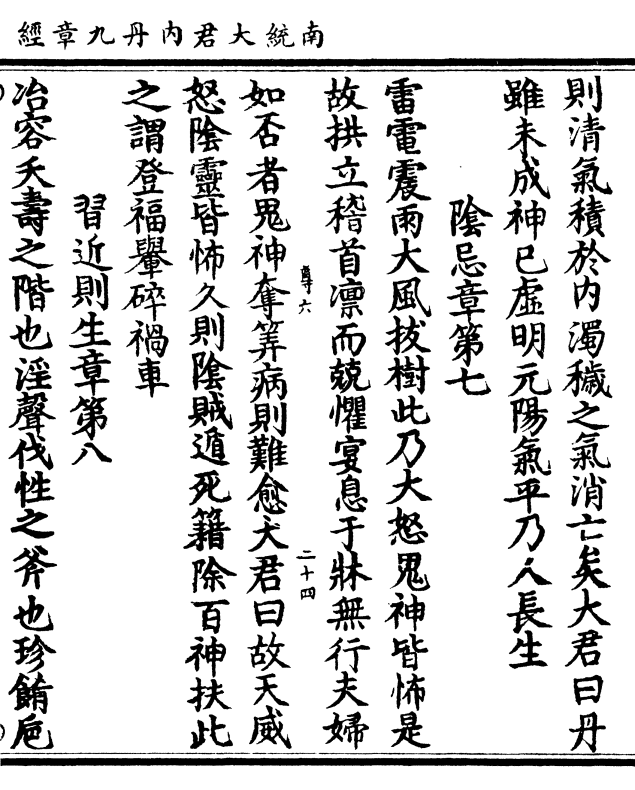 南統大君內丹九章經
則清氣積於内濁穢之氣消亡矣大君曰丹
雖未成神已虛明元陽氣平乃久長生
陰忌章第七
雷電震雨大風拔樹此乃大怒鬼神皆怖是
故拱立稽首凛而兢懼宴息于牀無行夫婦
尊六
二十四
如否者鬼神奪筭病則難愈大君曰故天威
怒陰靈皆怖久則陰賊遁死籍除百神扶此
之謂登福轝碎禍車
習近則生章第八
冶容夭壽之階也淫聲伐性之斧也珍餚巵